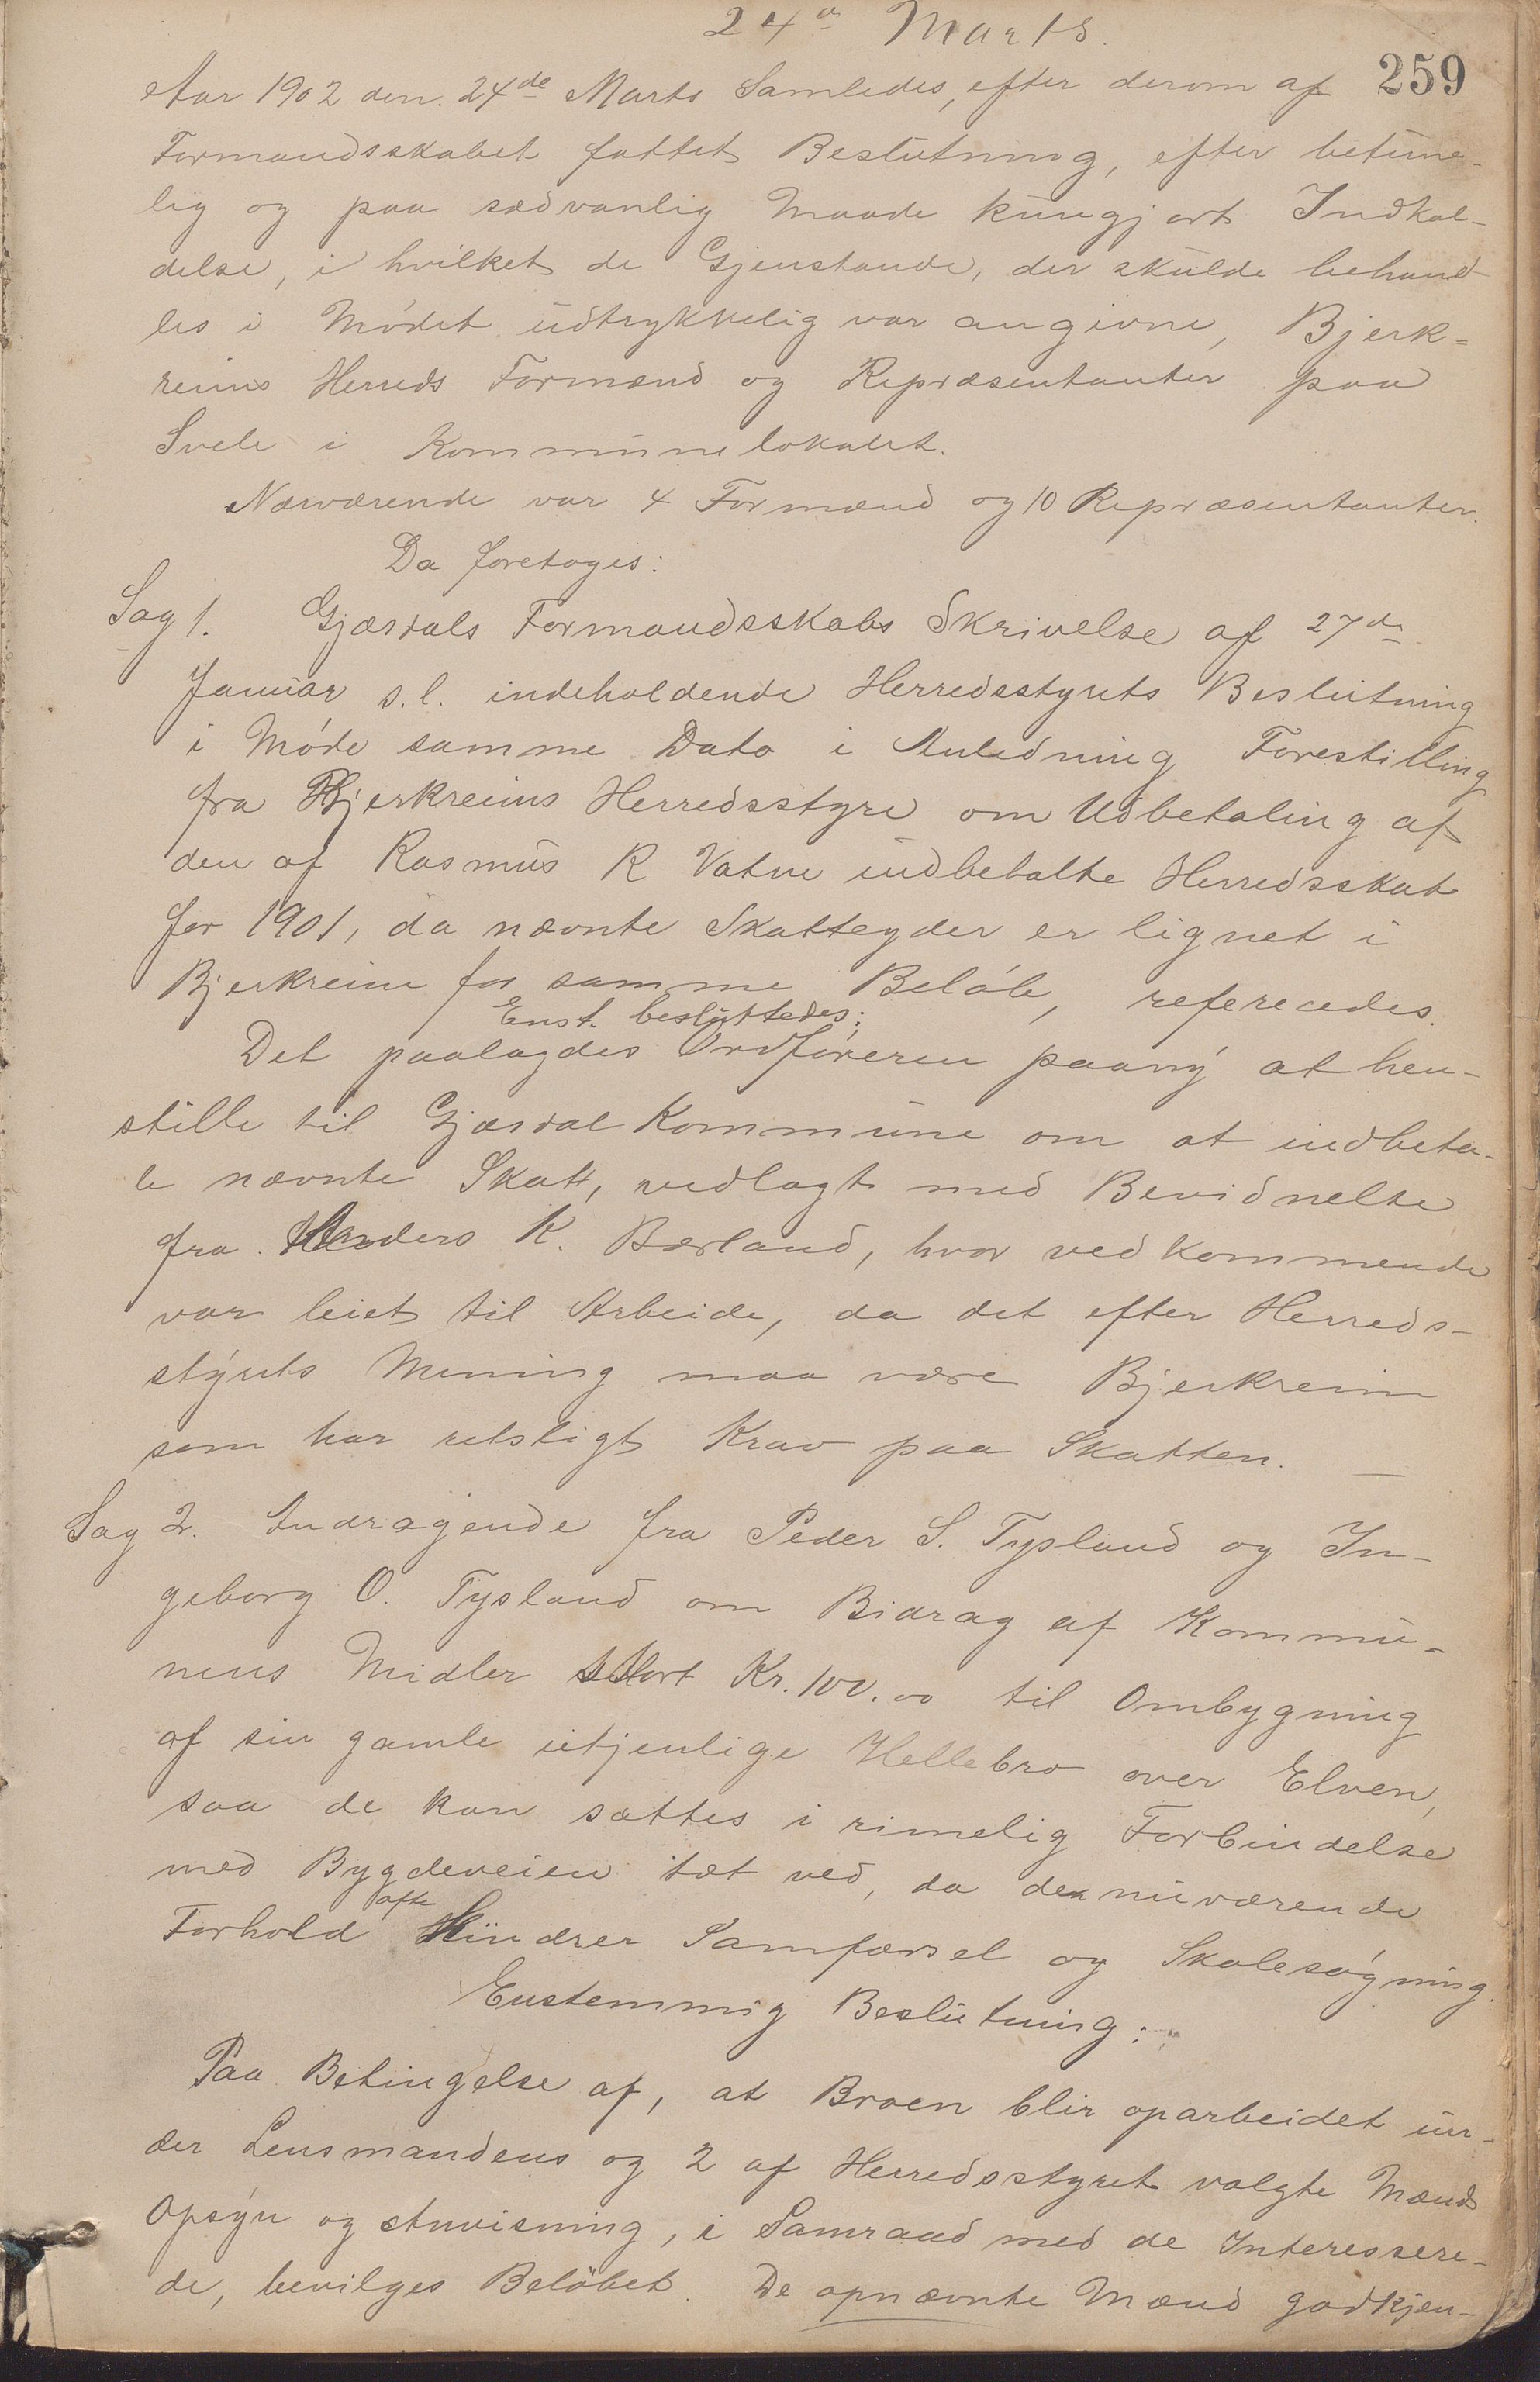 24de Marts.
259
Aar 1902 den 24de Marts Samledes, efter derom af
Formandsskabet fattet Beslutning, efter betime-
lig og paa sædvanlig Maade kungjort Indkal-
delse, i hvilket de Gjenstande, der skulde behand-
les i Mødet udtrykkelig var angivne, Bjerk-
reims Herreds Formænd og Repræsentanter paa
Svele i Kommunelokalet.
Nærværende var 4 Formænd og 10 Repræsentanter.
Da foretoges:
Sag 1. Gjæsdals Formandsskabs Skrivelse af 27de
Januar s.l. indeholdende Herredsstyrets Beslutning
i Møde samme Dato i Anledning Forestilling
fra Bjerkreims Herredsstyre om Udbetaling af
den af Rasmus R Vatne indbetalte Herredsskat
for 1901, da nævnte Skatteyder er lignet i
Bjerkreim for samme Beløb, refereredes.
Enst. besluttedes:
Det paalagdes Ordføreren paany at hen-
stille til Gjæsdal Kommune om at indbeta-
le nævnte Skatt, vedlagt med Bevidnelse
fra Anders K. Bærland, hvor vedkommende
var leiet til Arbeide, da det efter Herreds-
styrets Mening maa være Bjerkreim
som har retsligt Krav paa Skatten. —
Sag 2. Andragende fra Peder S. Tysland og In-
geborg O. Tysland om Bidrag af Kommu-
nens Midler stort Kr. 100.00 til Ombygning
af sin gamle utjenlige Hellebro over Elven,
saa de kan sættes i rimelig Forbindelse
med Bygdeveien tæt ved, da de nuværende
ofte
Forhold Hindrer Samfærsel og Skolesøgning.
Enstemmig Beslutning:
Paa Betingelse af, at Broen blir oparbeidet un-
der Lensmandens og 2 af Herredsstyret valgte Mænds
Opsyn og Anvisning, i Samraad med de Interessere-
de, bevilges Beløbet. De opnævnte Mænd godkjen-